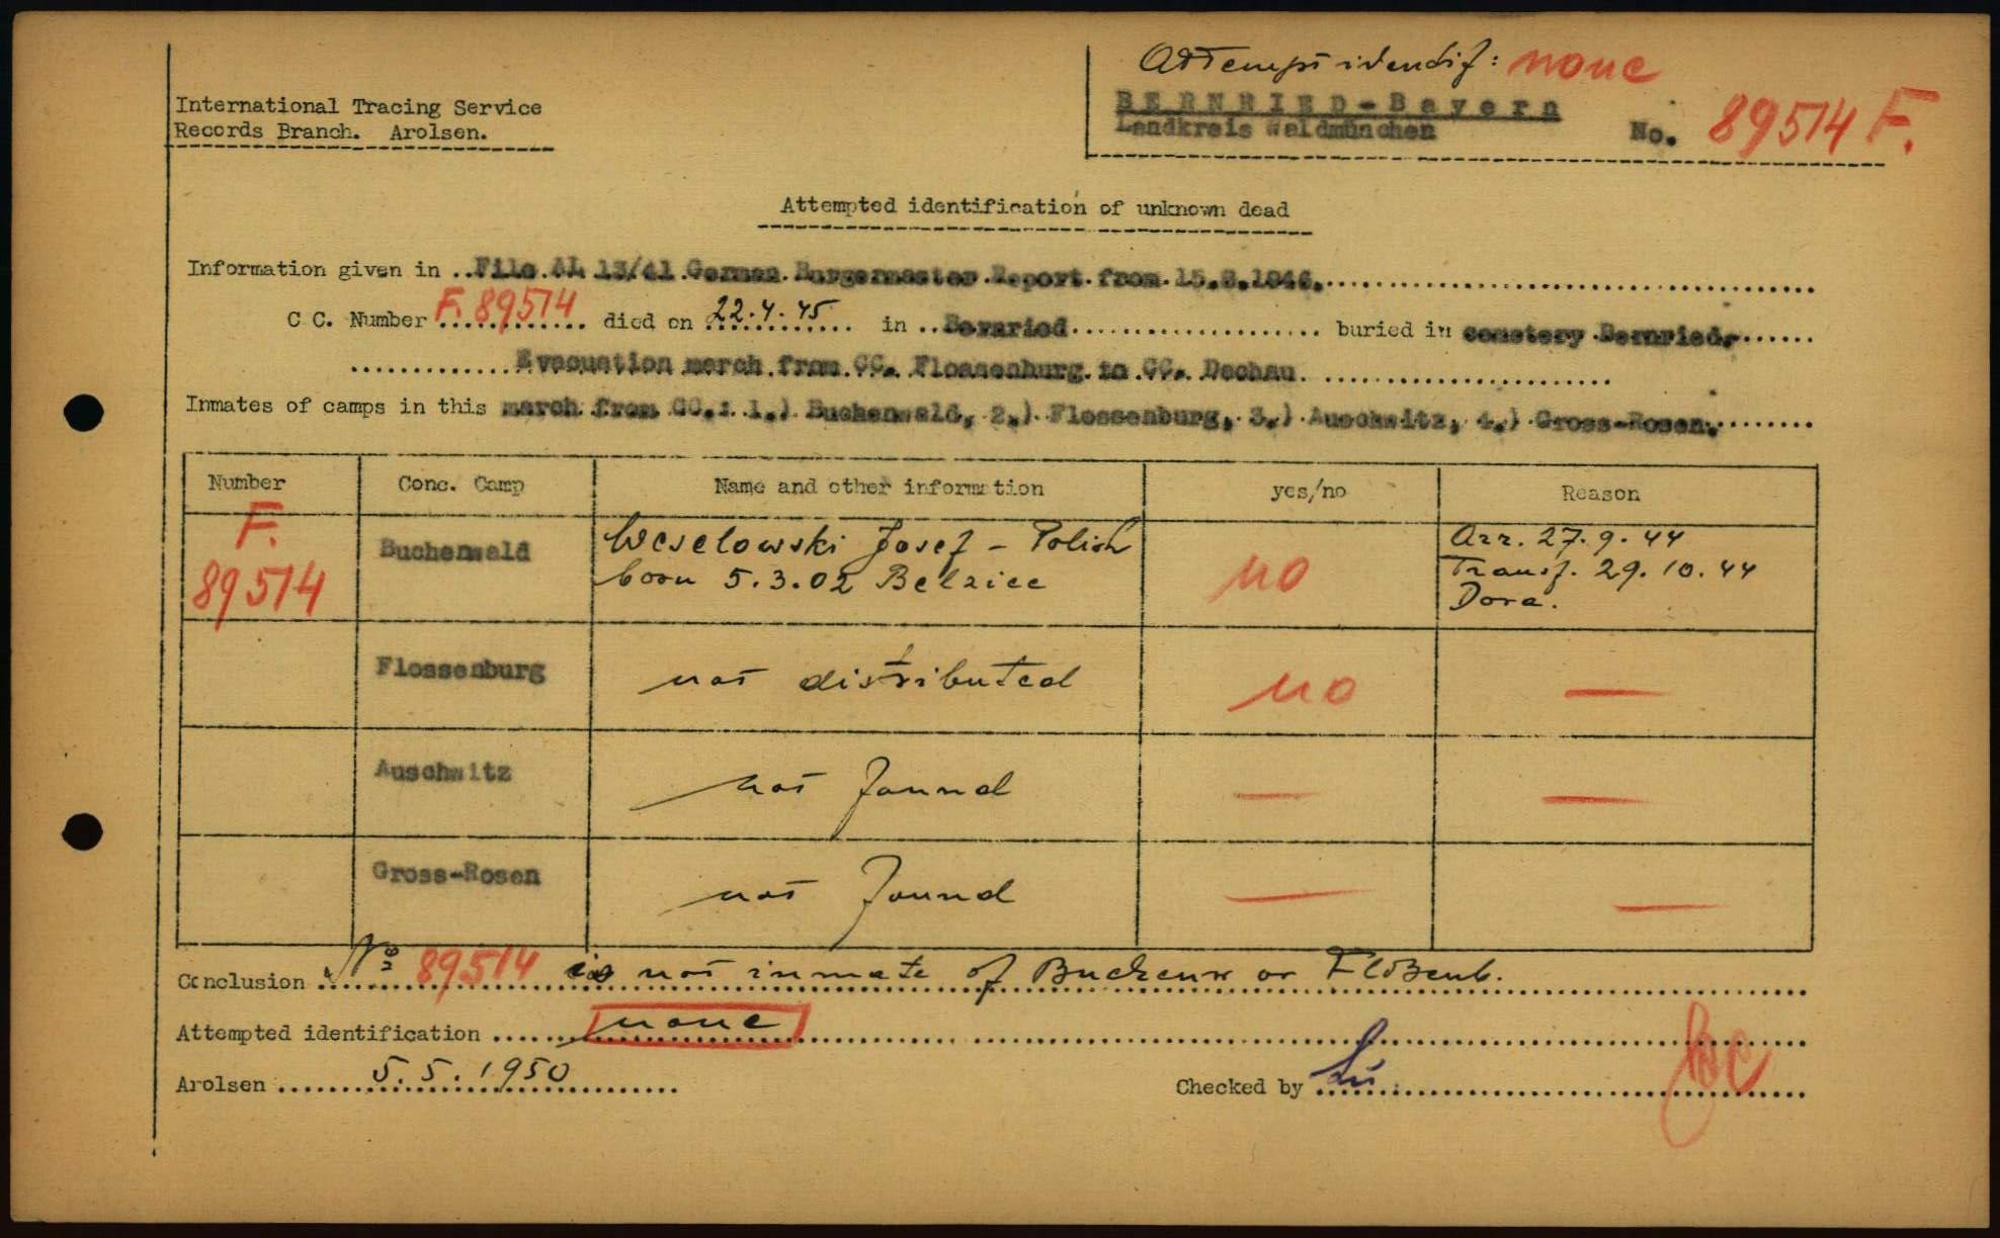 Attempt identif: none
International Tracing Service
Records Branch. Arolsen.
BERNRIED-Bayern
Landkreis Waldmünchen
No. 89514 F.
Attempted identification of unknown dead
Information given in ..File AL 13/41 German Burgermaster Report from 15.8.1946.
C C. Number F. 89514 died on 22.4.45 in ..Bernried buried in cemetery Bernried.
Evacuation march from CC. Flossenburg to CC. Dachau.
Inmates of camps in this march from CC.: 1.) Buchenwald, 2.) Flossenburg, 3.) Auschwitz, 4.) Gross-Rosen.
Number Conc. Camp Name and other information yes/no Reason
F. 89514 Buchenwald Weselowski Josef - Polish born 5.3.02 Belzice no Arr. 27.9.44 Transf. 29.10.44 Dora.
Flossenburg not distributed no —
Auschwitz not found — —
Gross-Rosen not found — —
Conclusion Nº 89514 is not inmate of Buchenw or Floßenb.
Attempted identification none
Arolsen 5.5.1950 Checked by